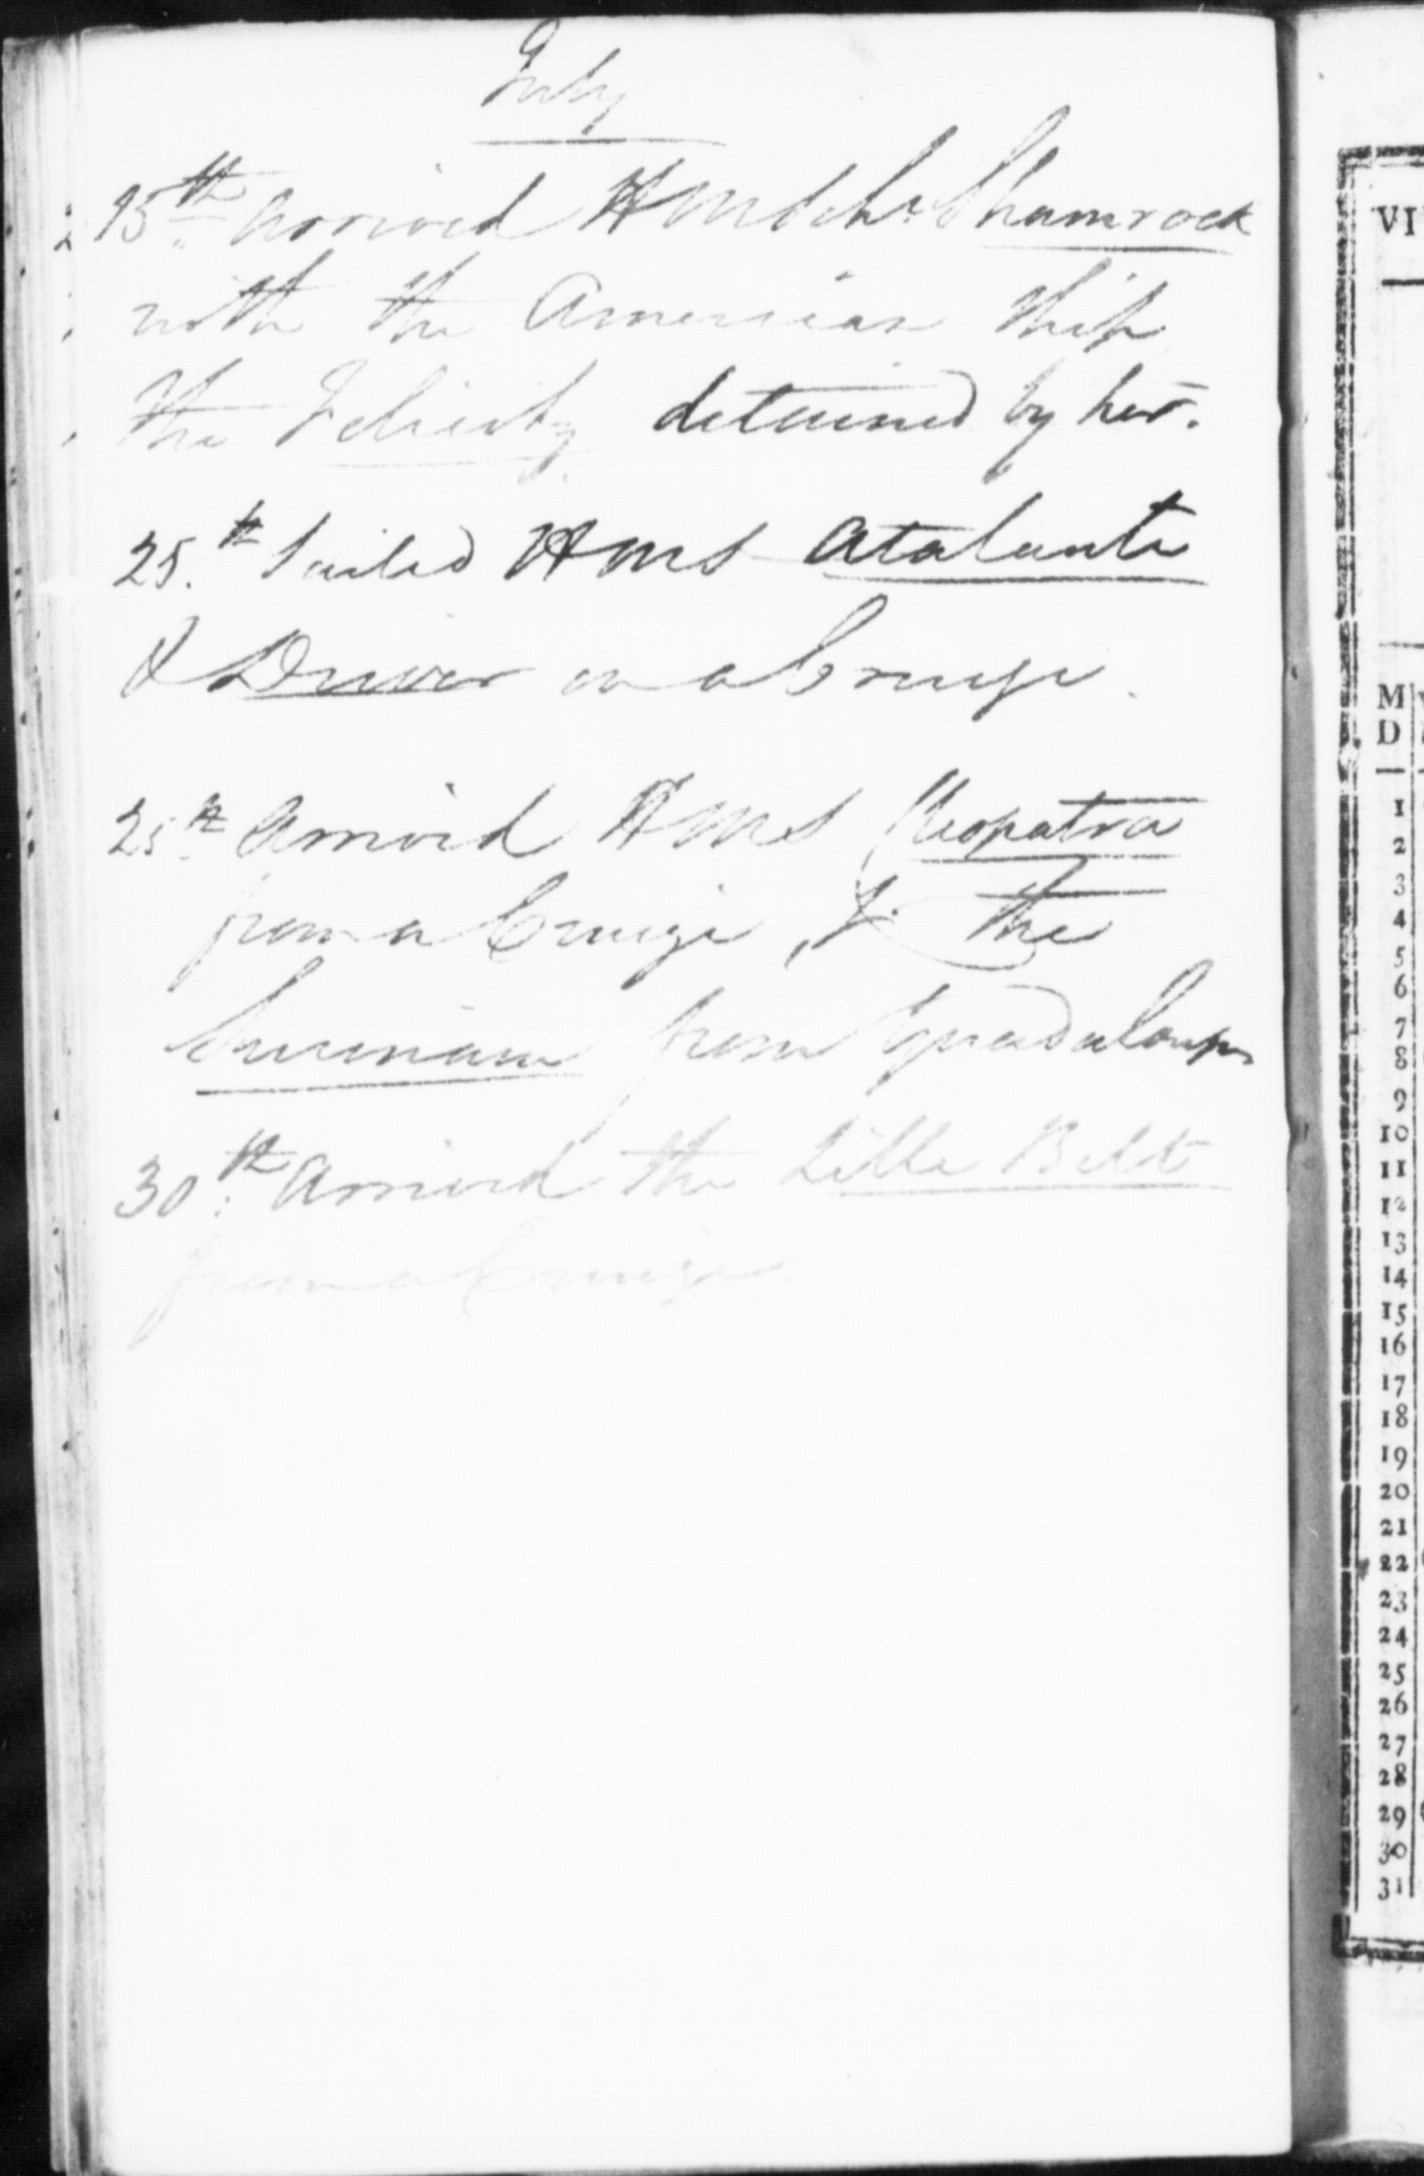 July
15th arrived HM Schr. Shamrock
with the American Ship
the Felicity detained by her.
25.th Sailed HMS Atalante
& Driver on a Cruize.
25th. arrived HMS Cleopatra
from a Cruize, & the
Surinam from Guadaloupe
30th. arrived the Lille Belt
from a Cruize.
VI
M
D
1
2
3
4
5
6
7
8
9
10
11
12
13
14
15
16
17
18
19
20
21
22
23
24
25
26
27
28
29
30
31